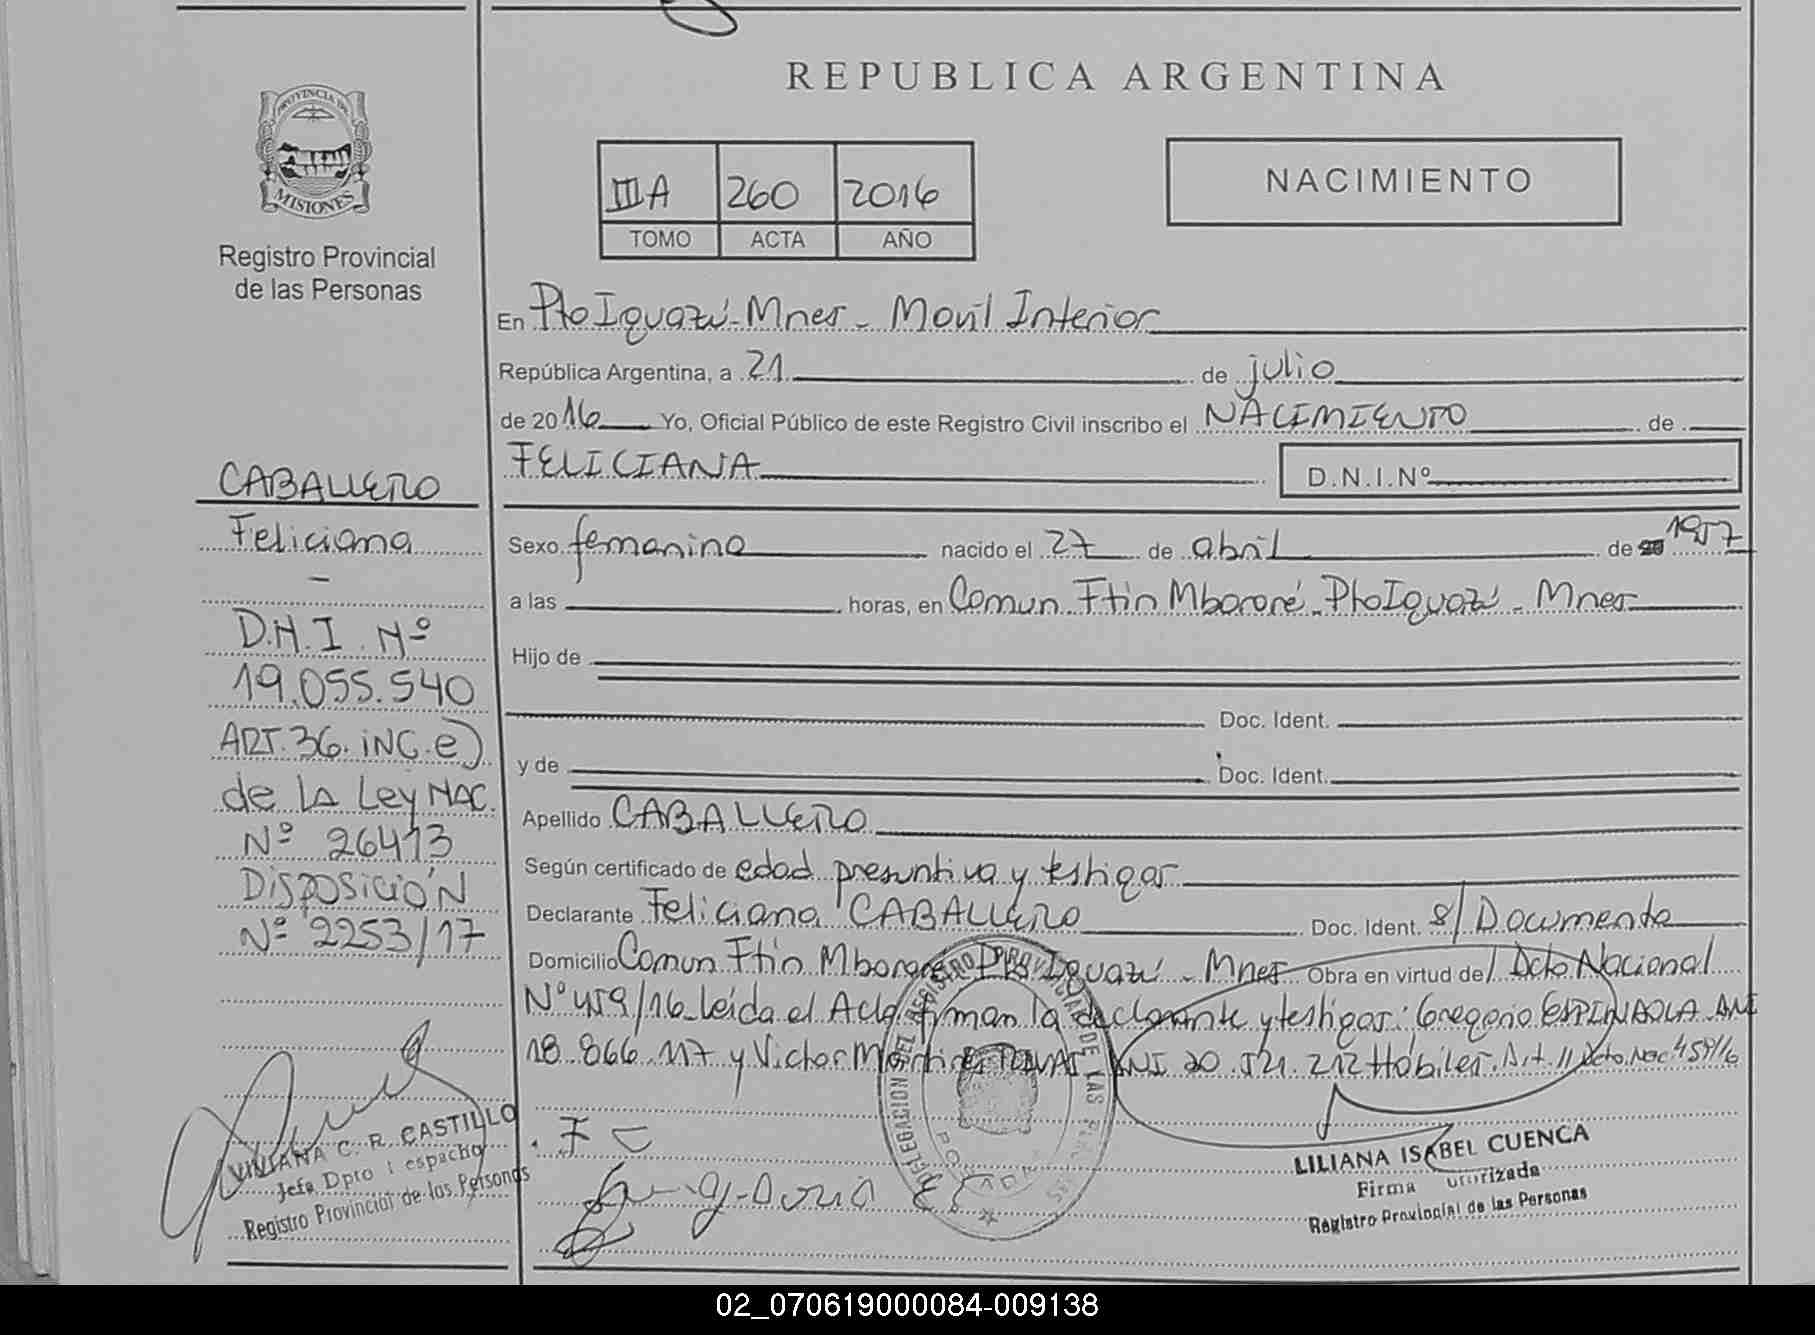 REPUBLICA ARGENTINA
PROVINCIA DE
MISIONES
Registro Provincial
de las Personas
IIIA 260 2016
TOMO ACTA AÑO
NACIMIENTO
En Pto Iguazú - Mnes - Movil Interior
República Argentina, a 21 de julio
de 2016 Yo, Oficial Público de este Registro Civil inscribo el NACIMIENTO de
FELICIANA D.N.I.Nº
Sexo femenino nacido el 27 de abril de 20 1957
a las horas, en Comun Ftin Mbororé - Pto Iguazú - Mnes
Hijo de
Doc. Ident.
y de Doc. Ident.
Apellido CABALLERO
Según certificado de edad presuntiva y testigos
Declarante Feliciana CABALLERO Doc. Ident. s/ Documento
Domicilio Comun Ftin Mbororé Pto Iguazú - Mnes Obra en virtud de/ Dcto Nacional
Nº 459/16 Leída el Acta firman la declarante y testigos: Gregorio ESPINDOLA DNI
18.866.117 y Victor DNI 20.521.212 Hábiles. Art. 11 Dcto. Nac 459/16
CABALLERO
Feliciana
-
D.N.I Nº
19.055.540
ART. 36. iNC. e)
de LA Ley NAC.
Nº 26413
DISPOSICIÓN
Nº 2253/17
VIVIANA C. R. CASTILLO
Jefe Dpto espacho
Registro Provincial de las Personas
F C
DELEGACION DEL REGISTRO PROVINCIAL DE LAS
LILIANA ISABEL CUENCA
Firma utorizada
Registro Provincial de las Personas
02_070619000084-009138